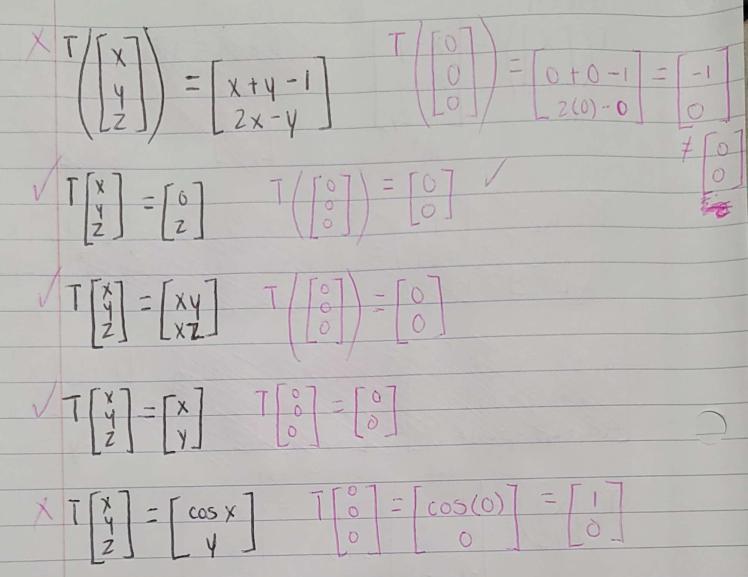 ✗ T([x y z]) = [x+y-1 2x-y] T([0 0 0]) = [0+0-1 2(0)-0] = [-1 0]
≠ [0 0]
✓ T[x y z] = [0 z] T([0 0 0]) = [0 0] ✓
✓ T[x y z] = [xy xz] T([0 0 0]) = [0 0]
✓ T[x y z] = [x y] T[0 0 0] = [0 0]
✗ T[x y z] = [cos x y] T[0 0 0] = [cos(0) 0] = [1 0]